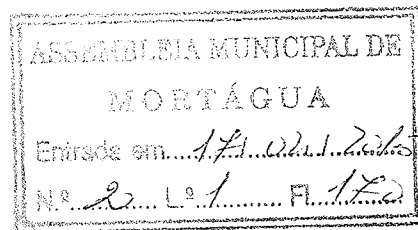 ASSEMBLEIA MUNICIPAL DE
MORTÁGUA
Entrada em....17/02/2015
N.º 2 L.º 1 Fl. 170